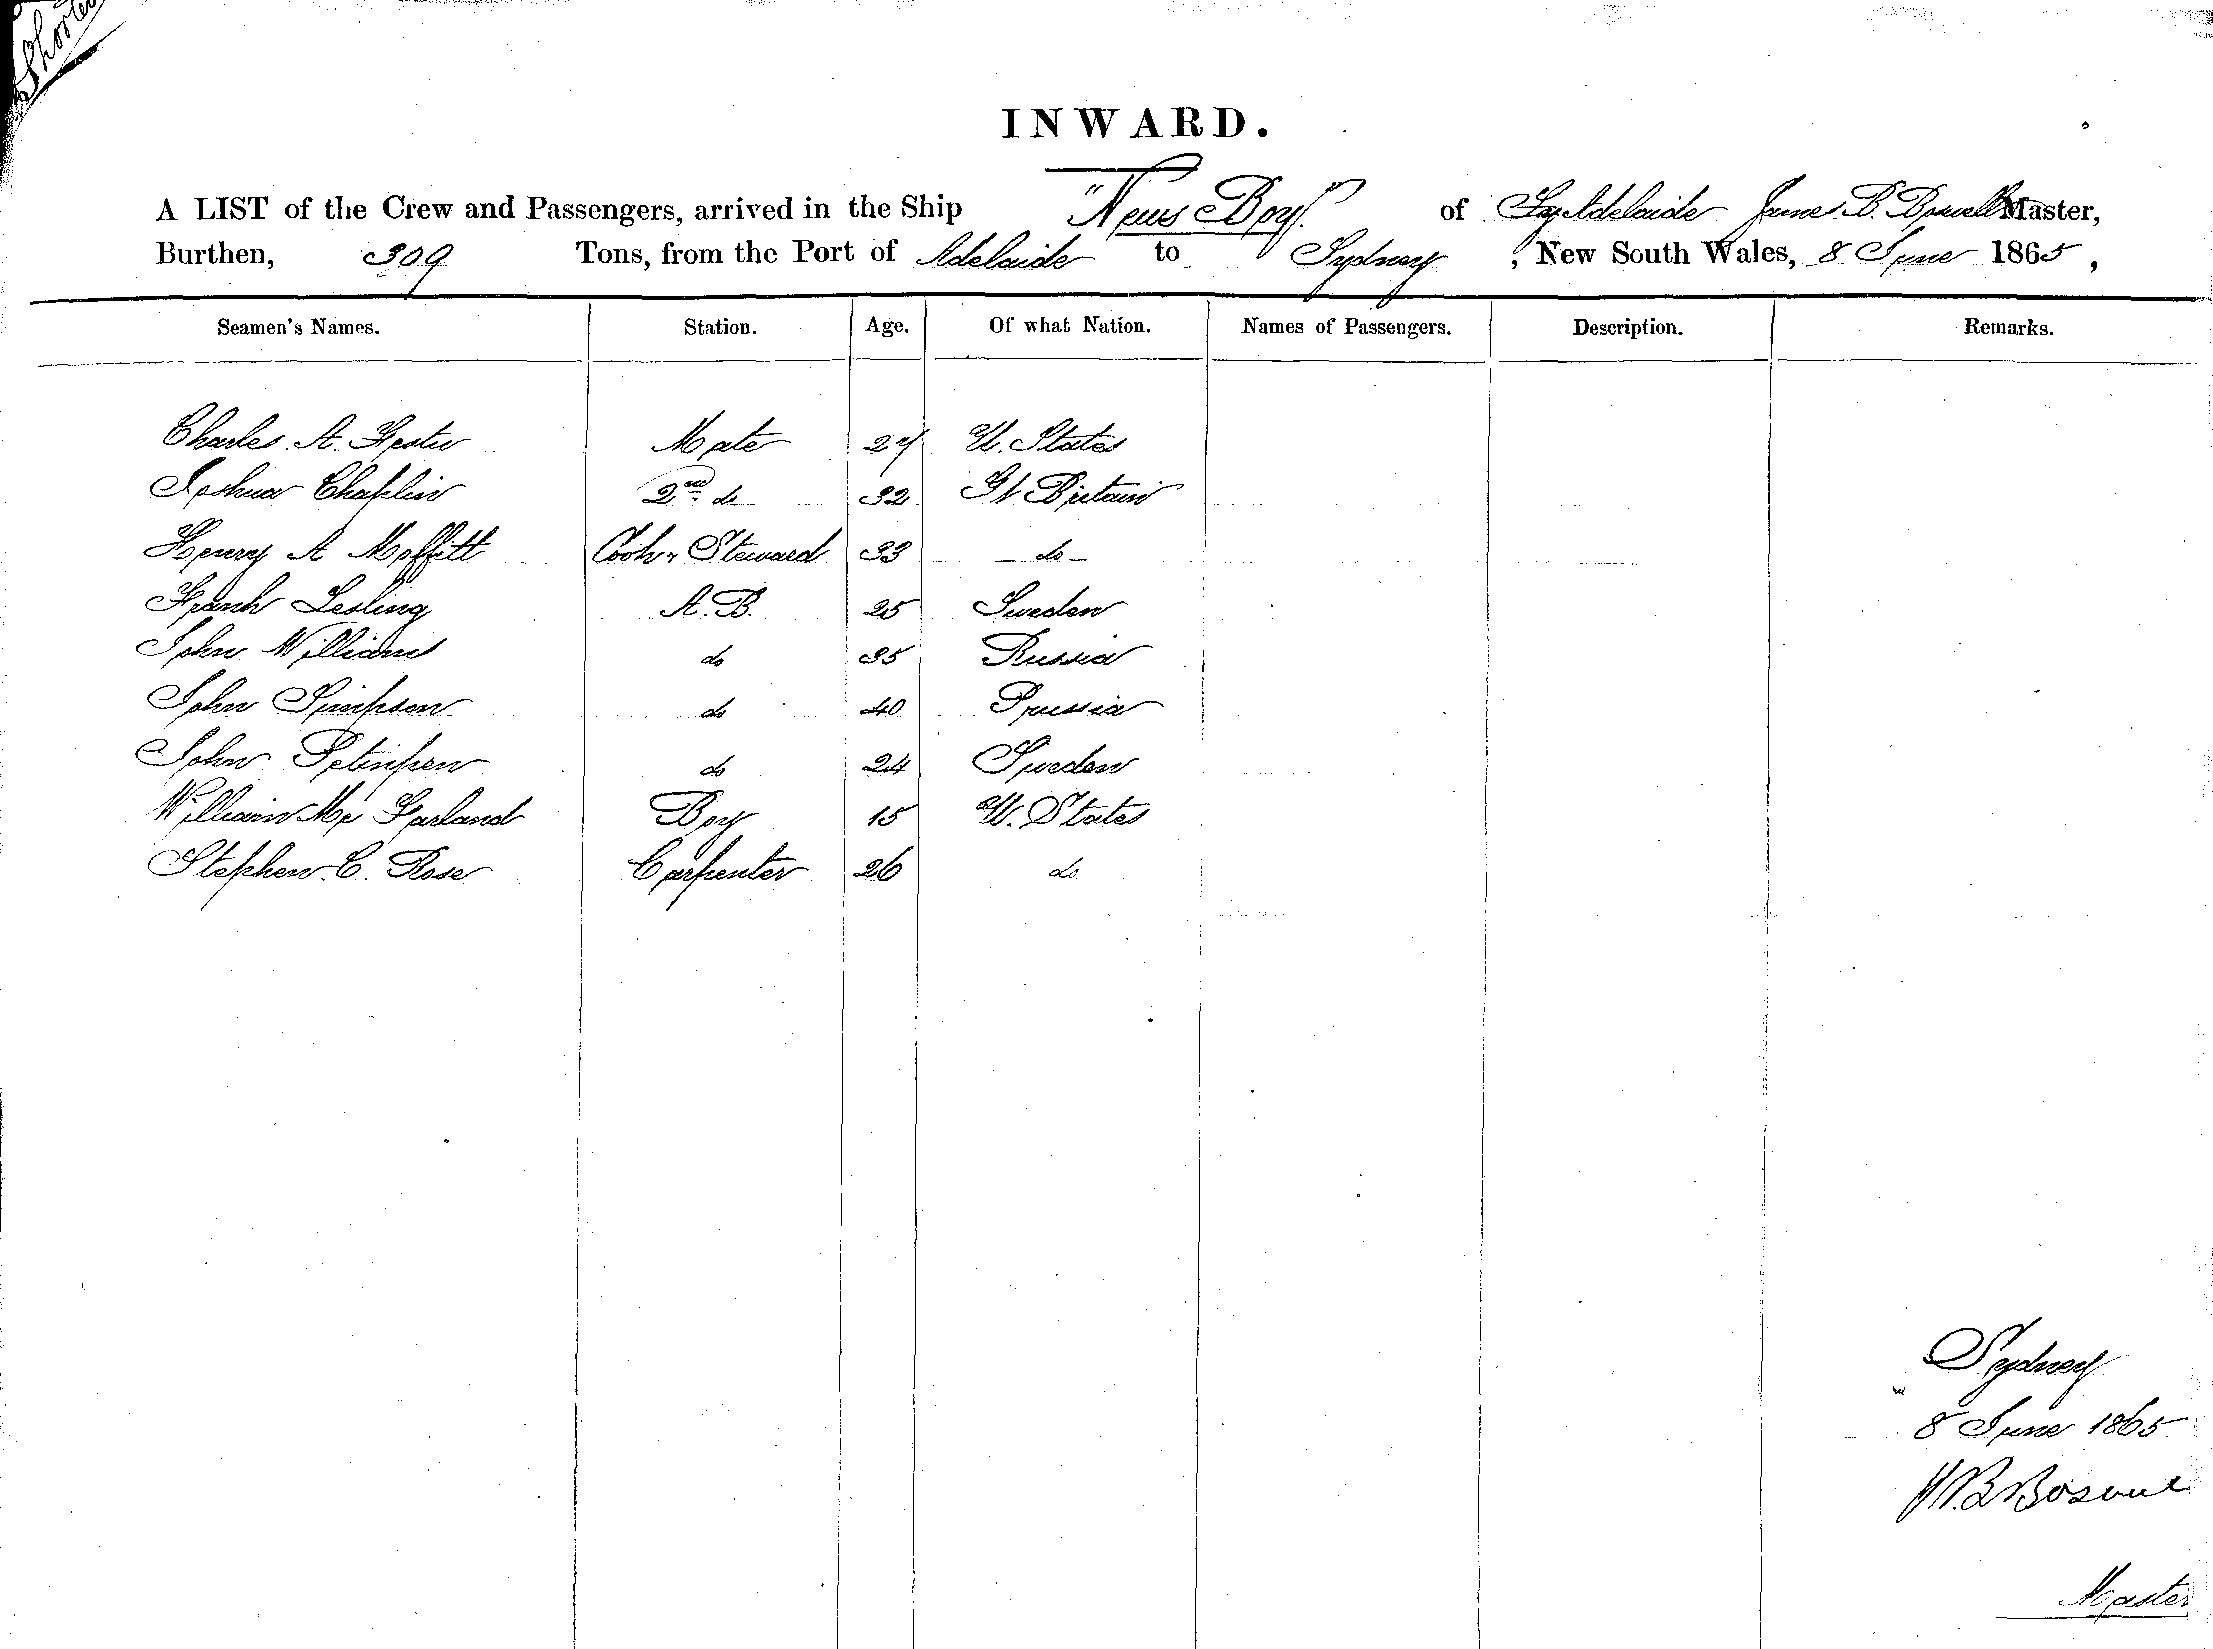 INWARD.
A LIST of the Crew and Passengers, arrived in the Ship "News Boy" of Adelaide James B. Master,
Burthen, 309 Tons, from the Port of Adelaide to Sydney, New South Wales, 8 June 1865,
Seamen's Names. Station. Age. Of what Nation. Names of Passengers. Description. Remarks.
Charles A. Mate U. States
Joshua Chaplin 2nd do 32 Gt Britain
Henry A Moffitt Cook & Steward 33 - do -
Frank Lesling A.B. 25 Sweden
John Williams do 35 Russia
John Simpson do 40 Prussia
John do 24 Sweden
William Mc Farland Boy 15 U. States
Stephen C. Rose Carpenter 26 do
Sydney
8 June 1865
Master